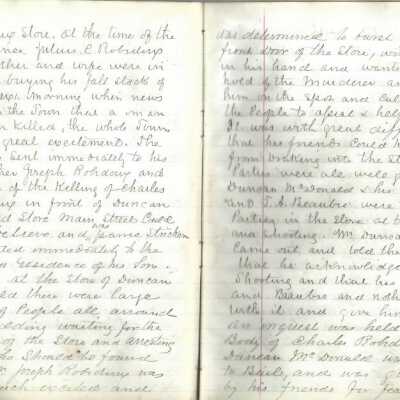 Store. At the time of the
Julius C. Robidoux
and wife were in
buying his fall stock of
morning when news
the Town that a man
killed, the whole Town
great excitement. The
sent immediately to his
Joseph Robidoux and
of the killing of Charles
in front of Duncan
Store Main Street
and James Stockton
immediately to the
residence of his Son
at the Store of Duncan
there were large
of People all around
waiting for the
of the Store and arresting
he should be found
Joseph Robidoux was
excited and
was determined to burst
front door of the Store,
in his hand and wanted
hold of the Murderer and
him on the spot and
the People to assist & help
It was with great
that his friends could
from breaking into the
Parties were all well
Duncan McDonald & his
and J. A. Beaubre were
Parties in the Store at
and shooting. Mr Duncan
came out and told the
that he acknowledge
Shooting and that his
and Beaubre had
with it and give him
an inquest was held
Body of Charles Robidoux
Duncan McDonald
to Bail, and was
by his friends for